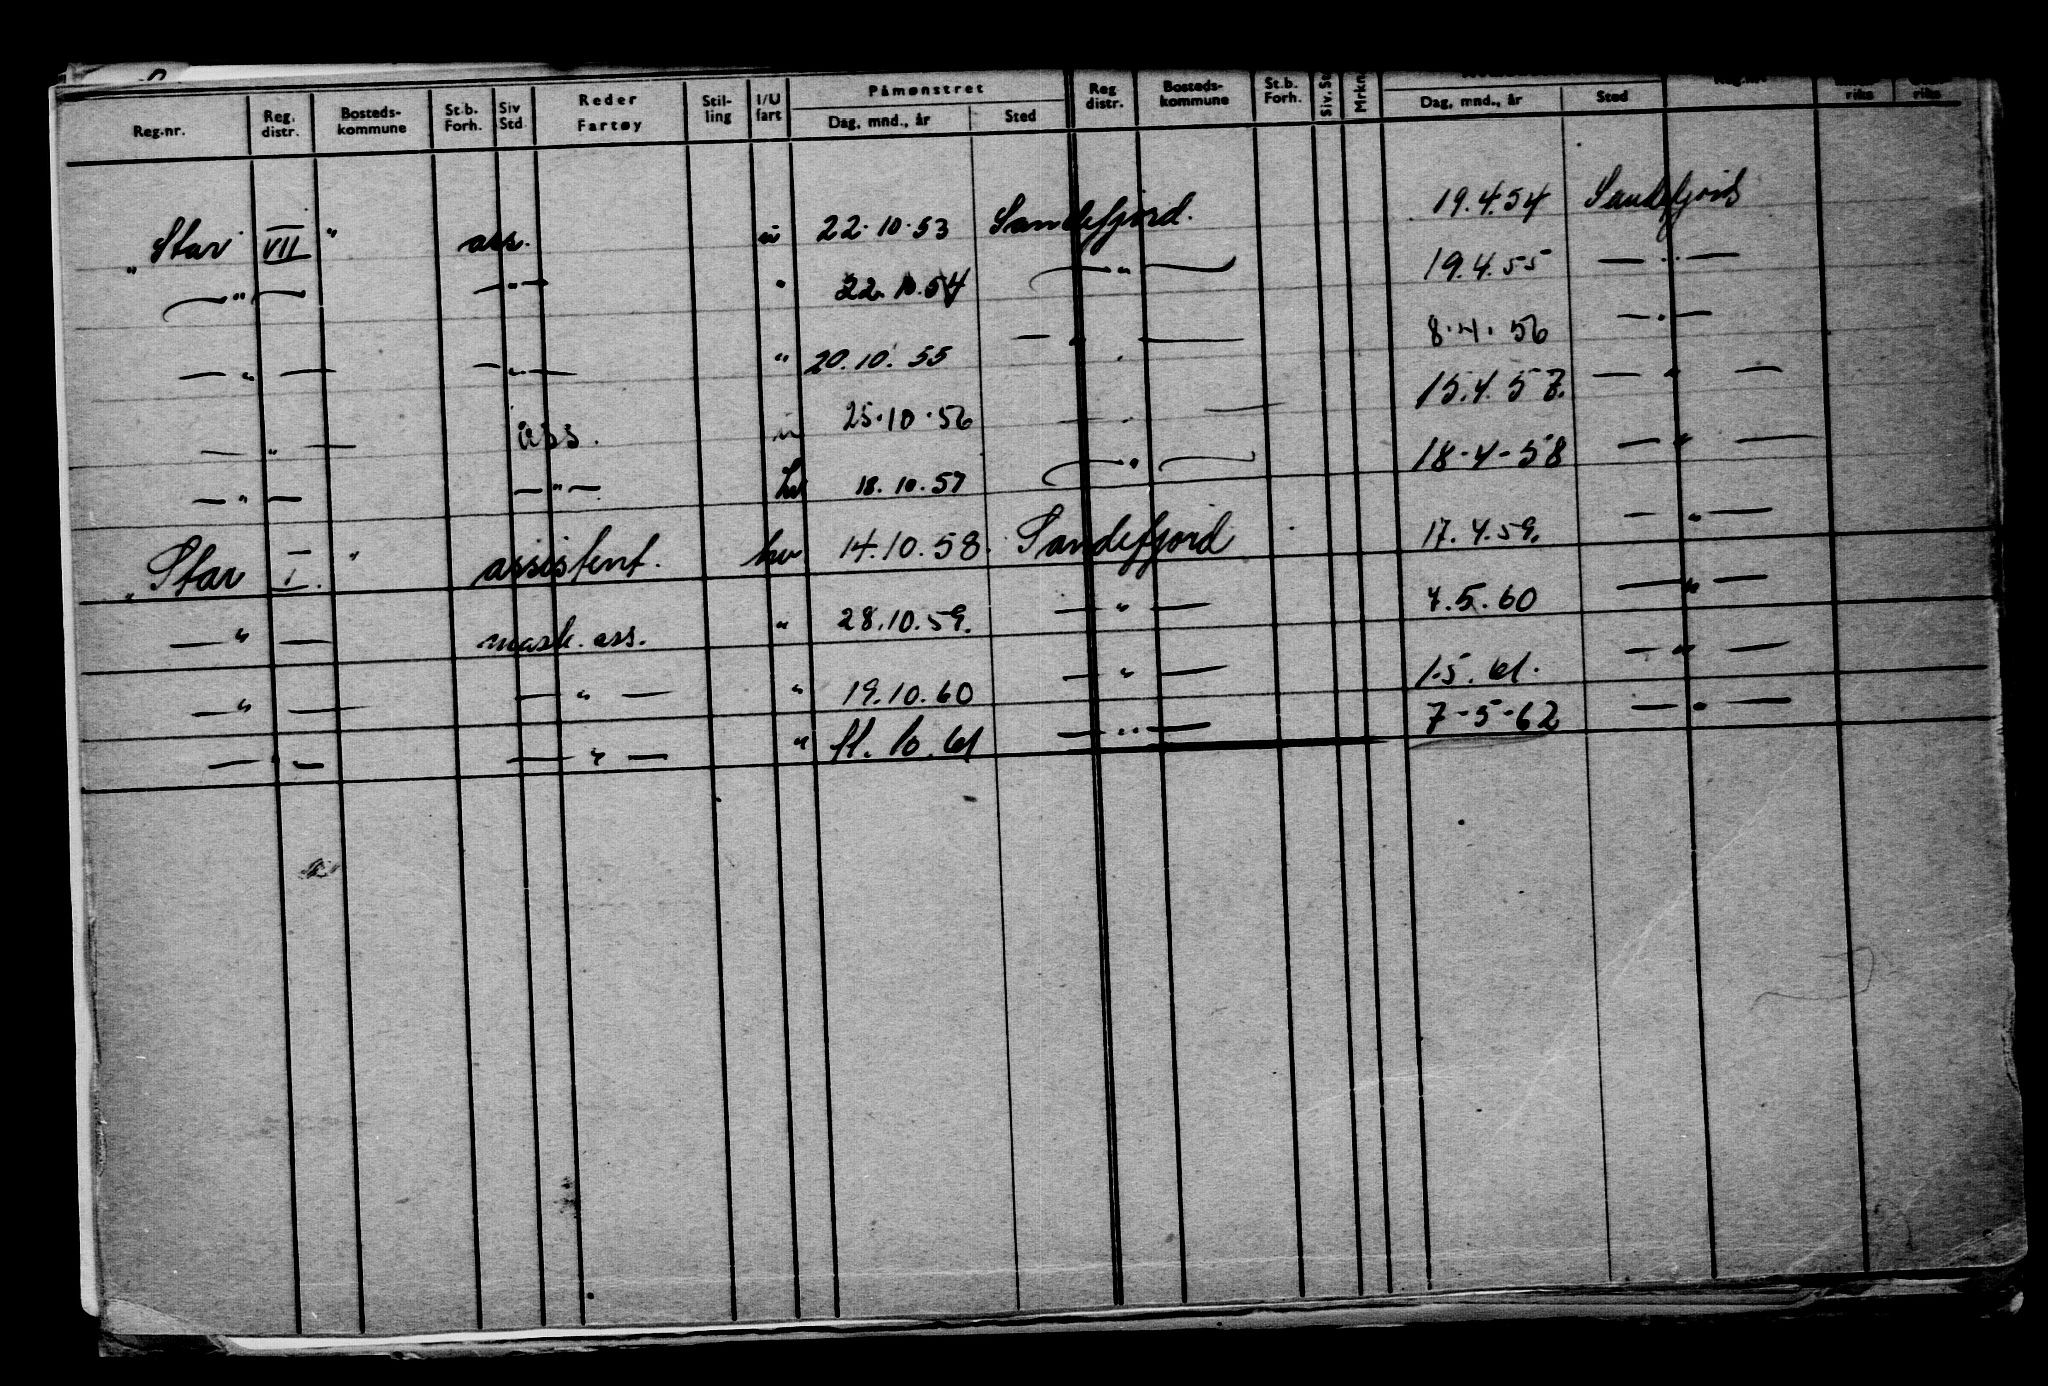 Reg.nr. Reg. distr. Bosteds-kommune St.b. Forh. Siv Std. Reder Fartøy Stil-ling I/U fart Påmønstret Dag, mnd., år Sted Reg distr. Bosteds-kommune St.b. Forh. Siv. St Mrkn Dag, mnd., år Sted riks riks
„Star VII " ass. u 22.10.53 Sandefjord. 19.4.54 Sandefjord
— " — — " — " 22.10.54 — " — 19.4.55 — " —
— " — — " — " 20.10.55 — " — 8.4.56 — " —
— " — ass. u 25.10.56 — " — 15.4.57. — " —
— " — — " — hv 18.10.57 — " — 18-4-58 — " —
„Star I. " assistent. hv 14.10.58. Sandefjord 17.4.59. — " —
— " — mask. ass. " 28.10.59. — " — 7.5.60 — " —
— " — — " — " 19.10.60 — " — 1.5.61. — " —
— " — — " — " 11.10.61 — " — 7-5-62 — " —